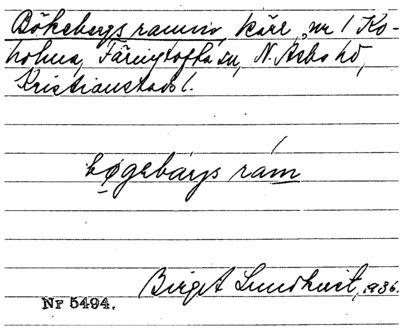 Bökebergs ramm, kärr, nr 1 Ko-
holma, Färingtofta sn, N. Åsbo hd,
Kristianstads l.
bøgebárys rám
Birgit Lundkvist, 1936.
Nr 5494.